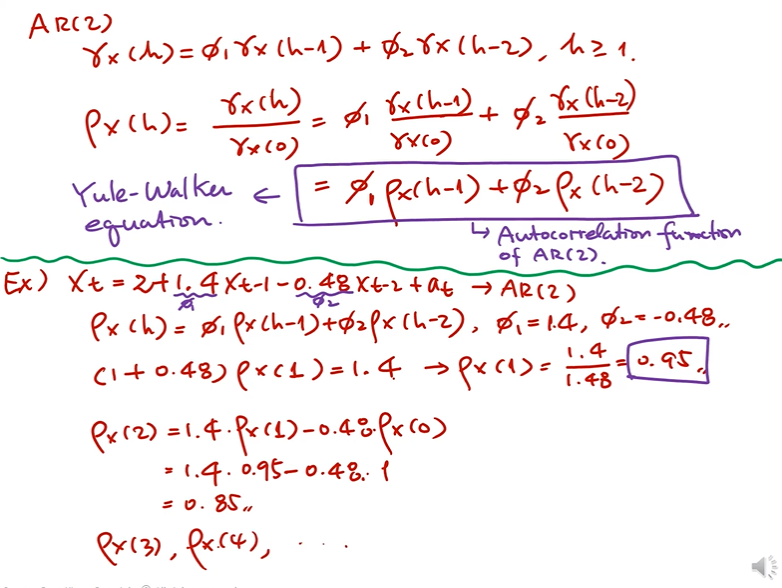 AR(2)
γx(h) = ϕ₁γx(h-1) + ϕ₂γx(h-2), h ≥ 1.
ρx(h) = γx(h)/γx(0) = ϕ₁ γx(h-1)/γx(0) + ϕ₂ γx(h-2)/γx(0)
Yule-Walker equation. ← = ϕ₁ρx(h-1) + ϕ₂ρx(h-2)
↳ Autocorrelation function
of AR(2).
Ex) Xt = 2+1.4 Xt-1 - 0.48 Xt-2 + at → AR(2)
ϕ₁ ϕ₂
ρx(h) = ϕ₁ρx(h-1)+ϕ₂ρx(h-2), ϕ₁ = 1.4, ϕ₂ = -0.48
(1 + 0.48) ρx(1) = 1.4 → ρx(1) = 1.4/1.48 = 0.95
ρx(2) = 1.4·ρx(1) - 0.48·ρx(0)
= 1.4 · 0.95 - 0.48 · 1
= 0.85
ρx(3), ρx(4), ...